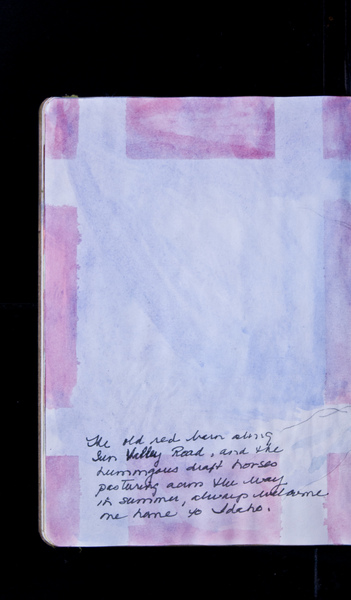 The old red barn along
Sun Valley Road, and the
humungous draft horses
pasturing across the way
in summer, always welcome
me home to Idaho.